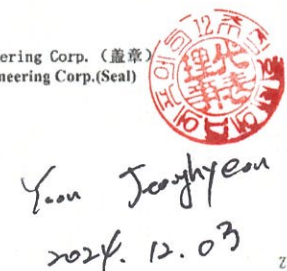 ering Corp. (盖章)
neering Corp.(Seal)
代表
理事
Yoon Jeonghyeon
2024. 12. 03